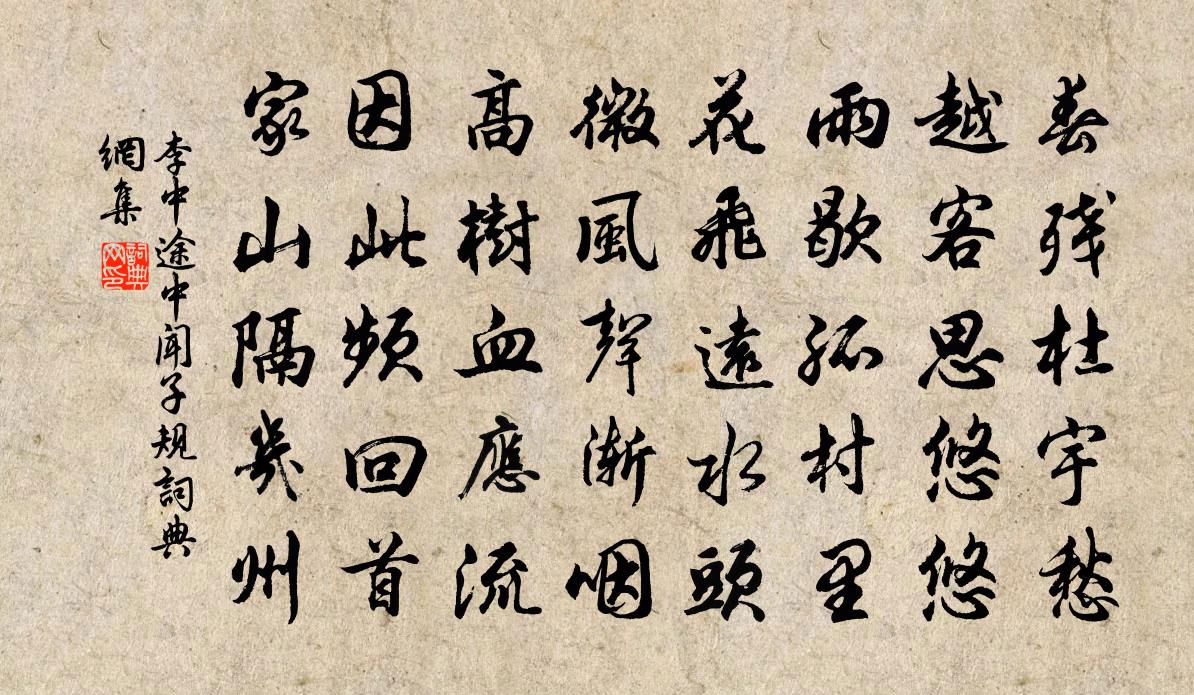 春殘杜宇愁
越客思悠悠
雨歇孤村里
花飛遠水頭
微風聲漸咽
高樹血應流
因此頻回首
家山隔幾州
李中途中聞子規詞典
網集
詞典
网印